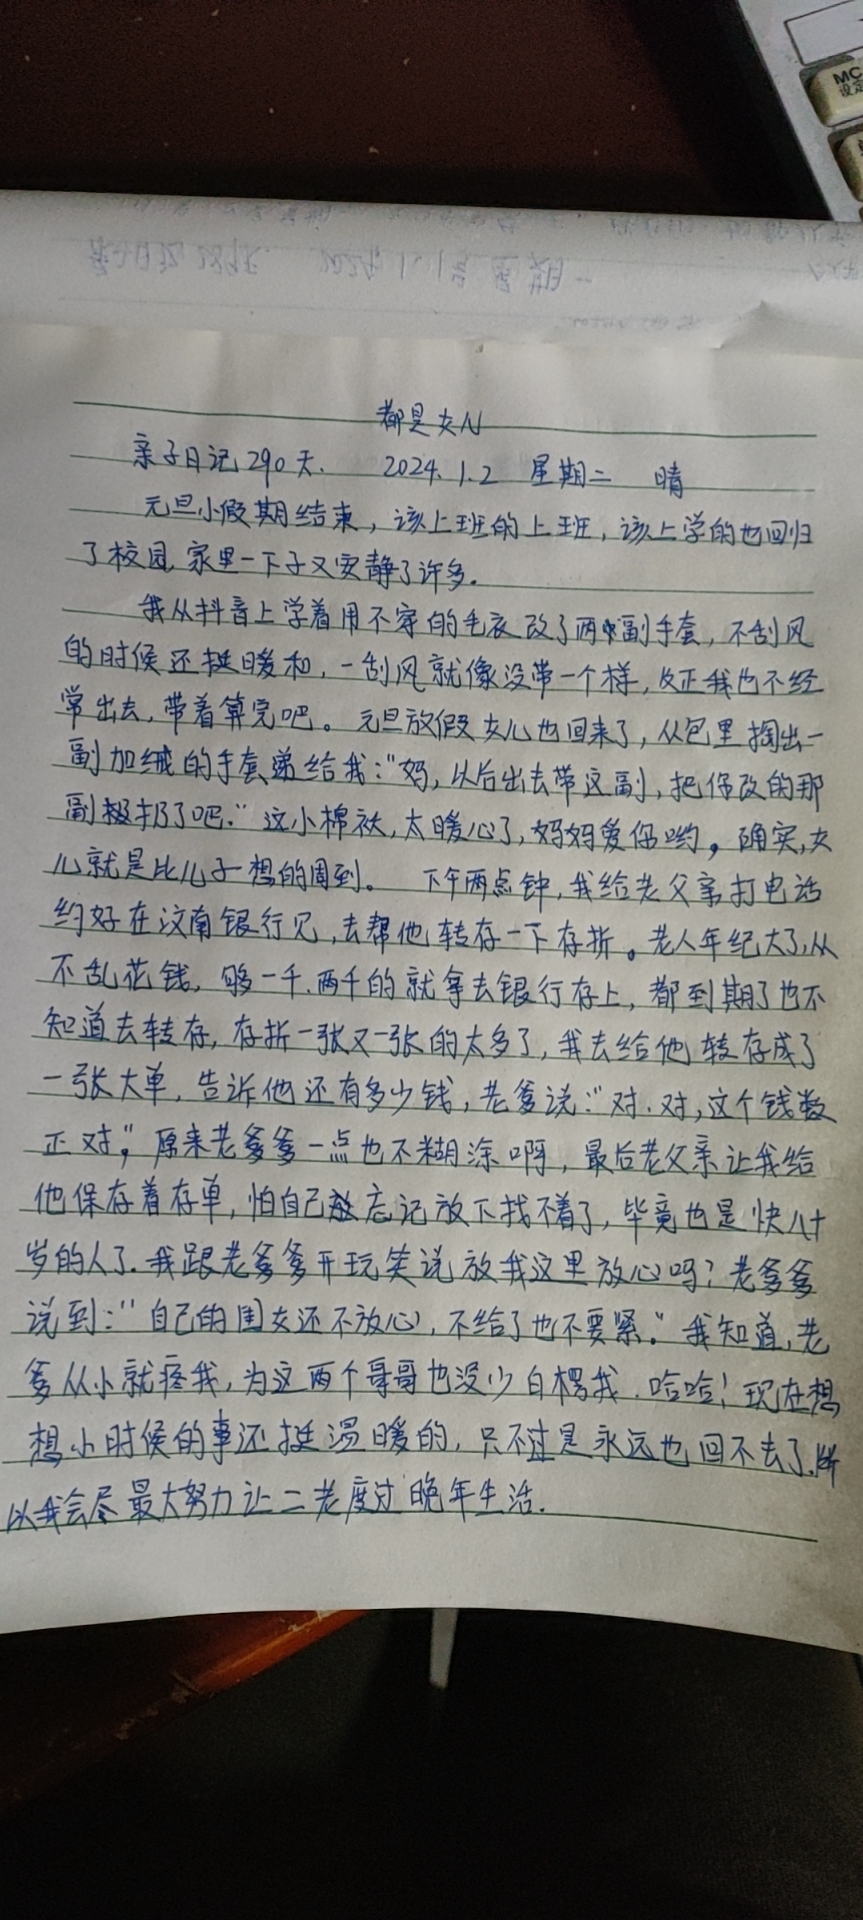 MC
设定
都是女儿
亲子日记290天. 2024.1.2 星期二 晴
元旦小假期结束，该上班的上班，该上学的也回归
了校园,家里一下子又安静了许多.
我从抖音上学着用不穿的毛衣改了两副手套，不刮风
的时候还挺暖和，一刮风就像没带一个样，反正我也不经
常出去，带着算完吧。元旦放假女儿也回来了，从包里掏出一
副加绒的手套递给我:“妈，以后出去带这副，把你改的那
副扔了吧.”这小棉袄，太暖心了，妈妈爱你哟，确实,女
儿就是比儿子想的周到。 下午两点钟，我给老父亲打电话
约好在汶南银行见，去帮他转存一下存折。老人年纪大了,从
不乱花钱，够一千.两千的就拿去银行存上，都到期了也不
知道去转存，存折一张又一张的太多了，我去给他转存成了
一张大单，告诉他还有多少钱，老爹说:“对.对，这个钱数
正对”，原来老爹爹一点也不糊涂啊，最后老父亲让我给
他保存着存单，怕自己忘记放下找不着了，毕竟也是快八十
岁的人了.我跟老爹爹开玩笑说放我这里放心吗？老爹爹
说到:“自己的闺女还不放心，不给了也不要紧.”我知道,老
爹从小就疼我，为这两个哥哥也没少白楞我.哈哈！现在想
想小时候的事还挺温暖的，只不过是永远也回不去了.所
以我会尽最大努力让二老度过晚年生活.